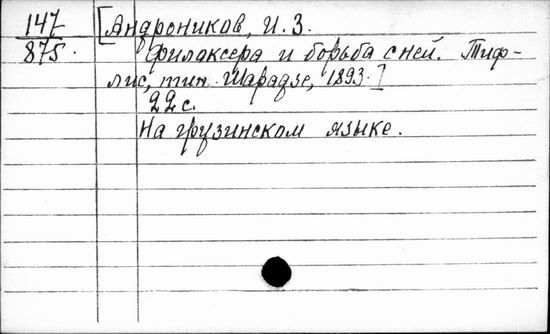 147
875.
[Андроников, И. З.
Филаксера и борьба с ней. Тиф-
лис, тип. Шарадзе, 1893.]
22 с.
На грузинском языке.